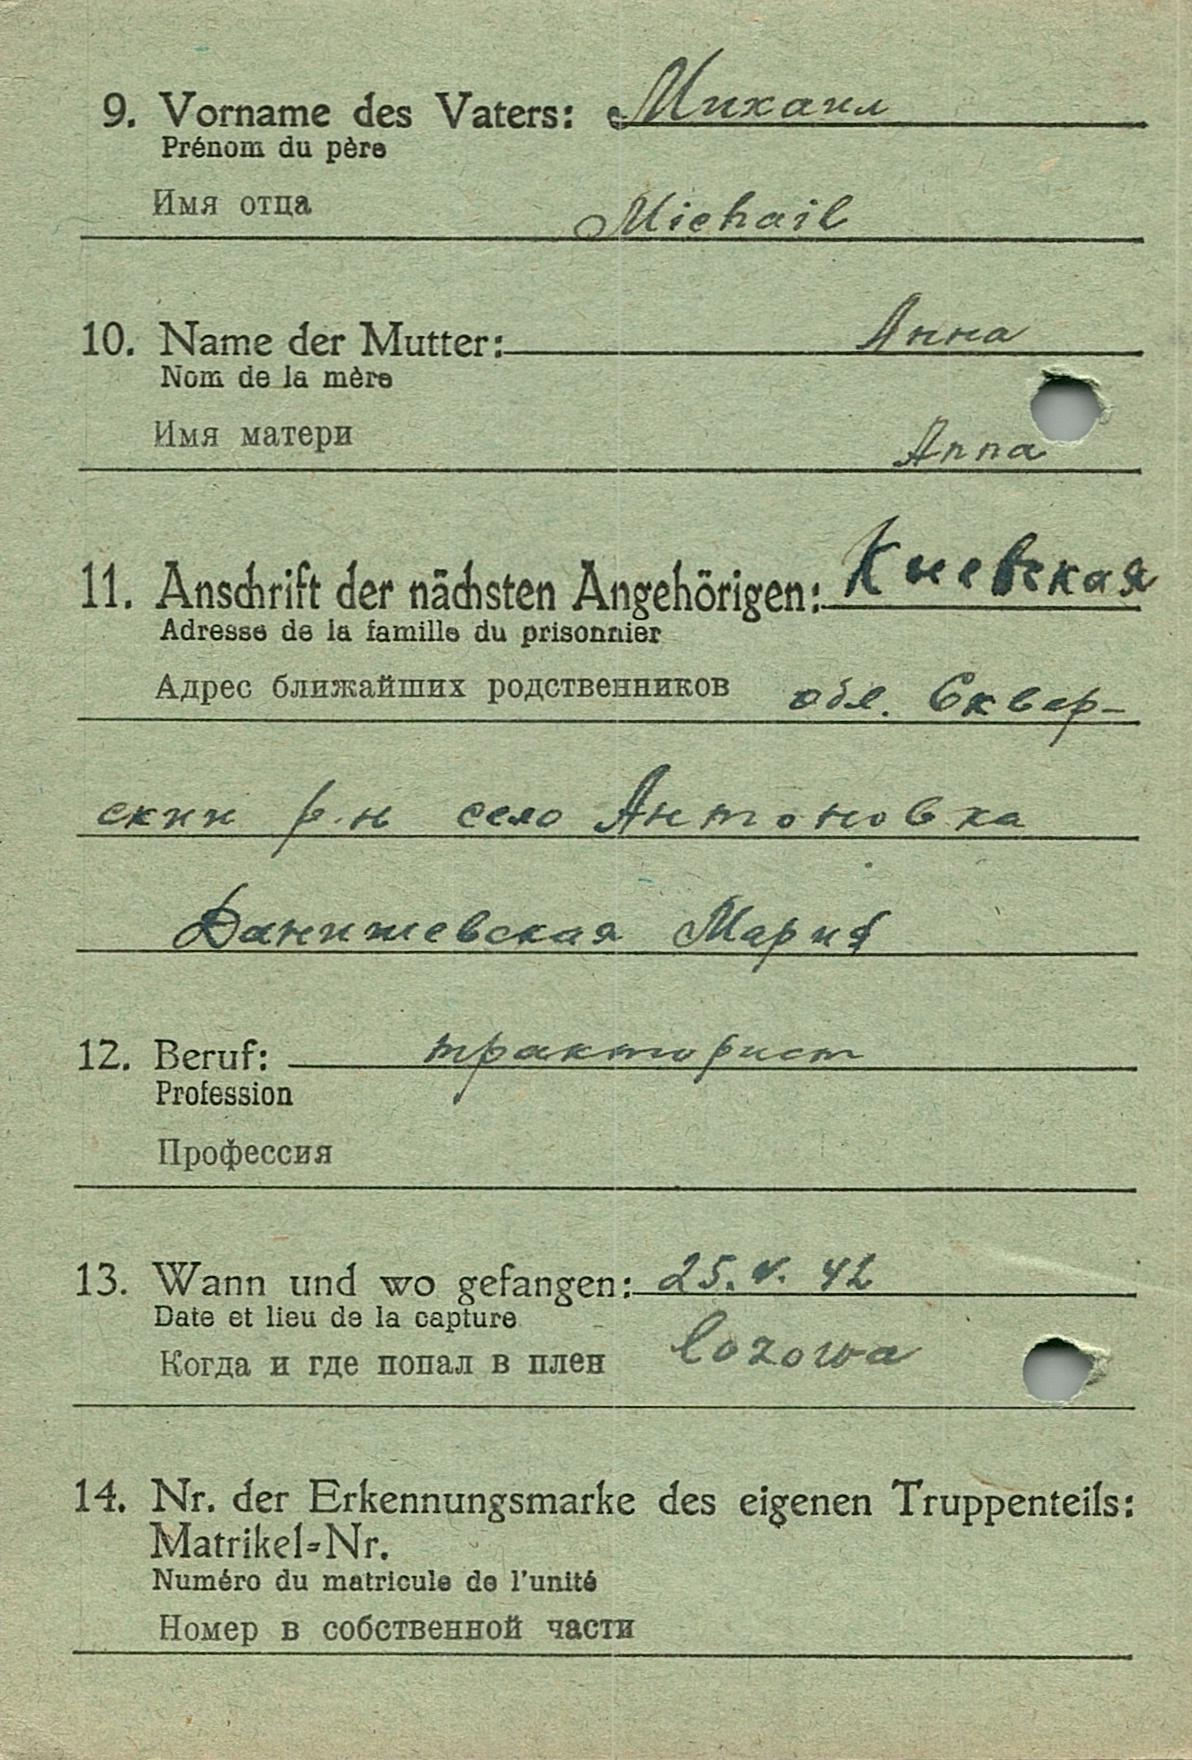 9. Vorname des Vaters: Михаил
Prénom du père
Имя отца Michail
10. Name der Mutter: Анна
Nom de la mère
Имя матери Anna
11. Anschrift der nächsten Angehörigen: Киевская
Adresse de la famille du prisonnier
Адрес ближайших родственников обл. Сквер-
скии р-н село Антоновка
Данишевская Мария
12. Beruf: тракторист
Profession
Профессия
13. Wann und wo gefangen: 25. V. 42
Date et lieu de la capture
Когда и где попал в плен Lozowa
14. Nr. der Erkennungsmarke des eigenen Truppenteils:
Matrikel-Nr.
Numéro du matricule de l'unité
Номер в собственной части